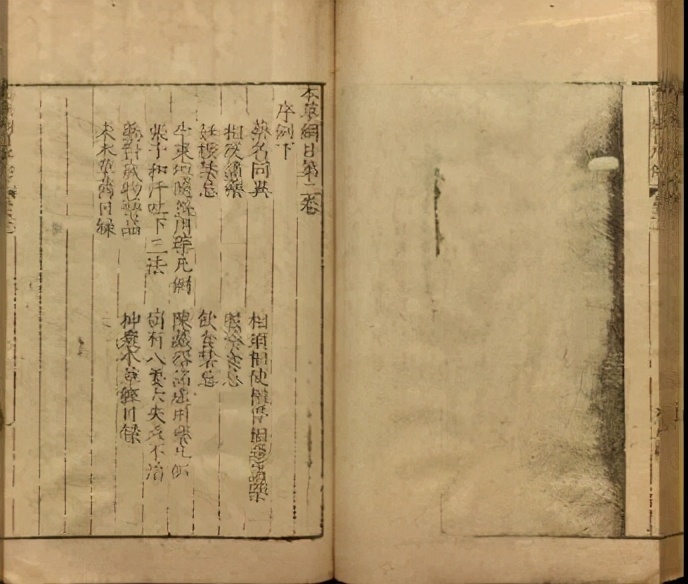 本草綱目第二卷
序例下
藥名同異 相須相使相惡諸藥
相反諸藥 服藥食忌
妊娠禁忌 飲食禁忌
李東垣隨證用藥凡例 陳藏器諸虛用藥凡例
張子和汗吐下三法 病有八要六失六不治
藥對歲物藥品 神農本草經目錄
宋本草舊目錄